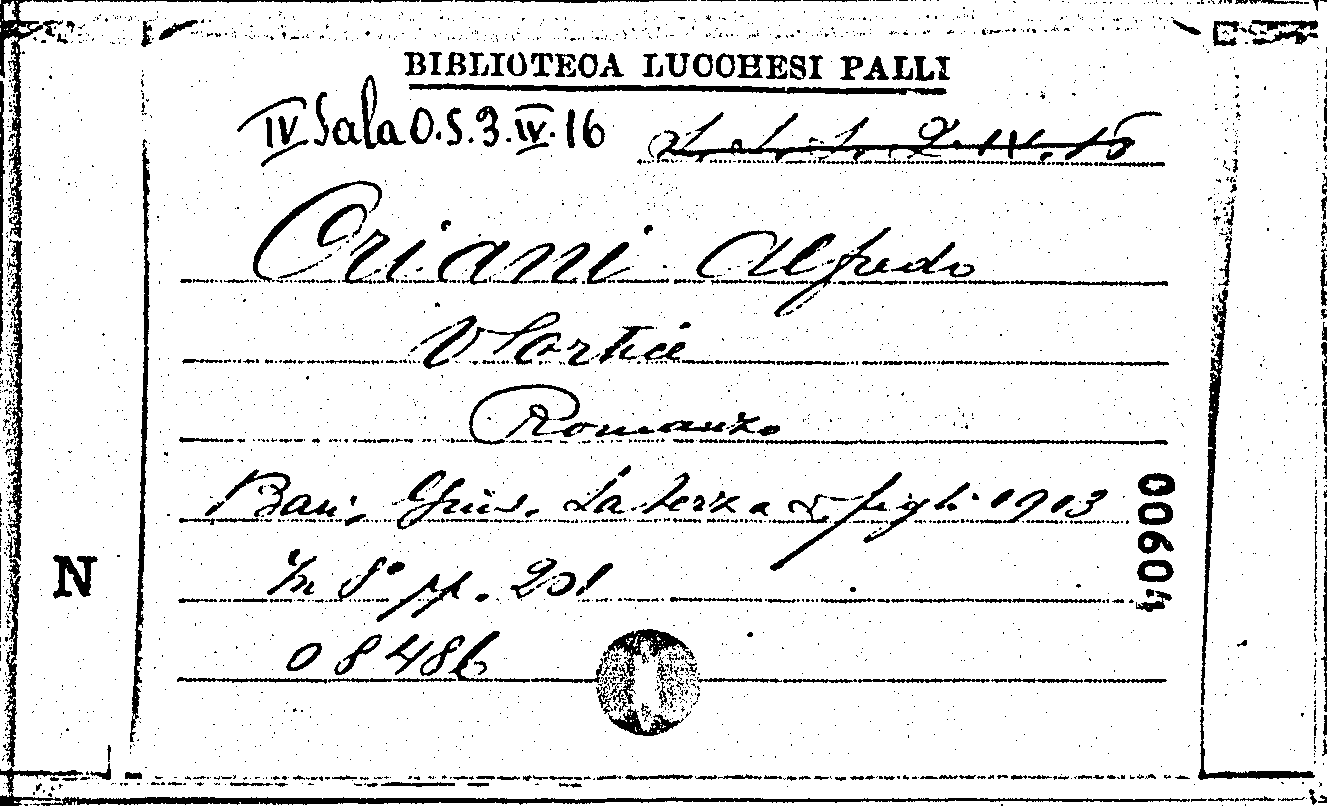 BIBLIOTECA LUCCHESI PALLI
IV Sala O.S.3.IV.16
2.IV.15
Oriani Alfredo
Vortice
Romanzo
Bari, Gius. Laterza & figli 1913
In 8° pp. 201
08486
N
00604